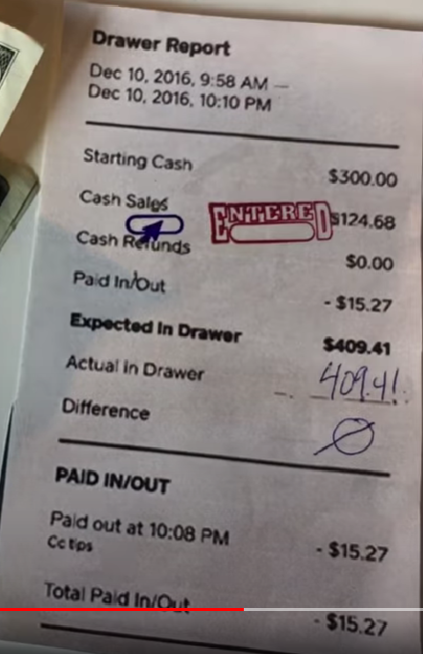 Drawer Report
Dec 10, 2016, 9:58 AM —
Dec 10, 2016, 10:10 PM
Starting Cash $300.00
Cash Sales $124.68
ENTERED
Cash Refunds $0.00
Paid In/Out - $15.27
Expected In Drawer $409.41
Actual In Drawer 409.41
Difference Ø
PAID IN/OUT
Paid out at 10:08 PM - $15.27
Cc tips
Total Paid In/Out - $15.27